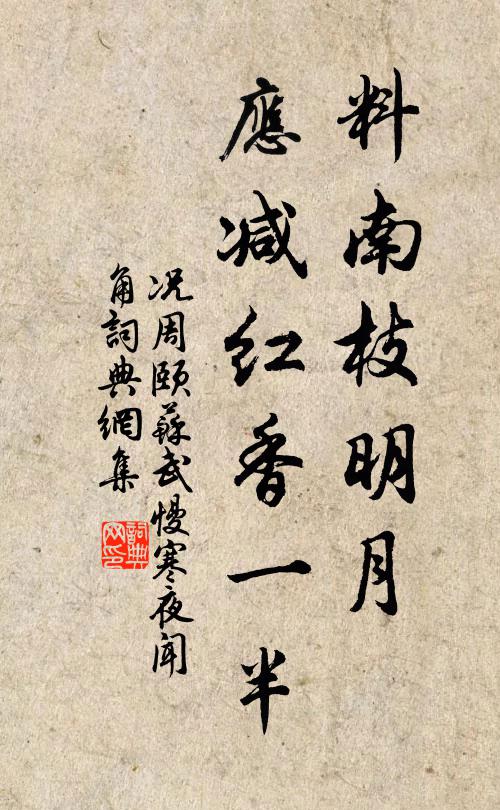 料南枝明月
應減红香一半
况周頤蘇武慢寒夜聞
角詞典網集
詞典
网印